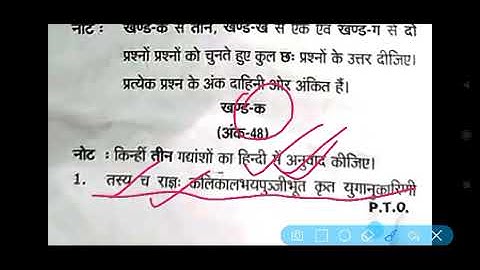 नोट : खण्ड-क से तीन, खण्ड-ख से एक एवं खण्ड-ग से दो
प्रश्नों प्रश्नों को चुनते हुए कुल छः प्रश्नों के उत्तर दीजिए।
प्रत्येक प्रश्न के अंक दाहिनी ओर अंकित हैं।
खण्ड-क
(अंक-48)
नोट : किन्हीं तीन गद्यांशों का हिन्दी में अनुवाद कीजिए।
1. तस्य च राज्ञः कलिकालभयपुञ्जीभूत कृत युगानुकारिणी
P.T.O.